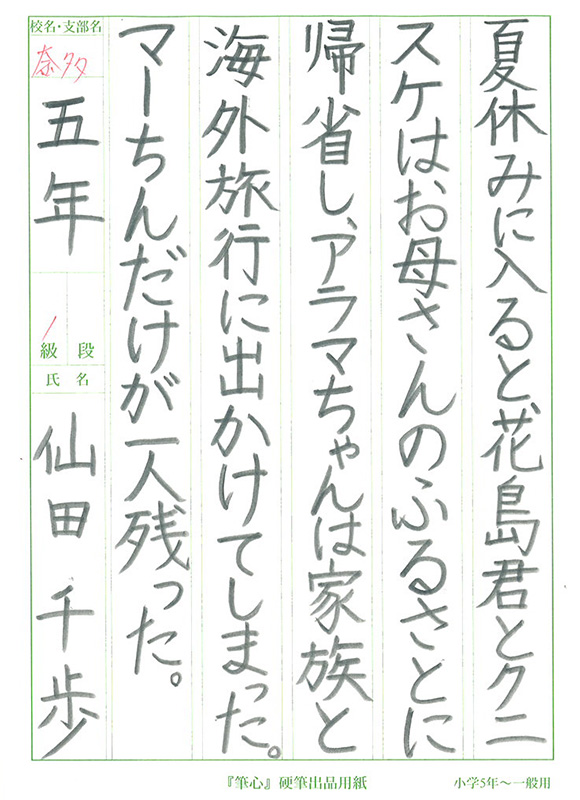 夏休みに入ると、花島君とクニ
スケはお母さんのふるさとに
帰省し、アラマちゃんは家族と
海外旅行に出かけてしまった。
マーちんだけが一人残った。
校名・支部名
奈多
五年
段
級
1
氏名
仙田千歩
『筆心』硬筆出品用紙
小学5年〜一般用